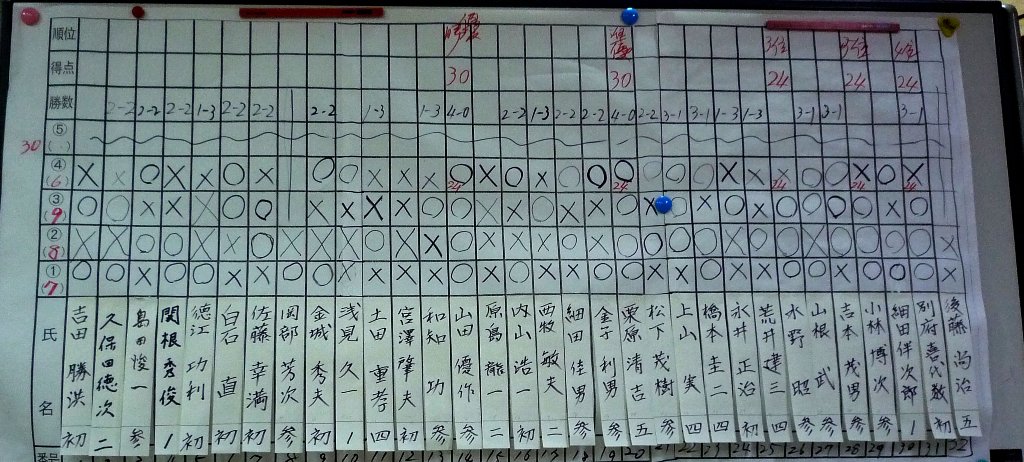 順位 優勝 準優 3位 3位 4位
得点 30 30 24 24 24
勝数 2-2 2-2 2-2 1-3 2-2 2-2 2-2 1-3 1-3 4-0 2-2 1-3 2-2 2-2 4-0 2-2 3-1 3-1 1-3 1-3 3-1 3-1 3-1
30 ⑤
④ (6) 24 24 24 24 24
③ (9)
② (8)
① 7
氏名
吉田 勝洪 初
久保田徳次 二
島田俊一 参
関根秀俊 1
徳江 功利 初
白石 直 初
佐藤 幸満 初
岡部 芳次 参
金城 秀夫 初
浅見 久一 1
土田 重孝 四
宮澤 肇夫 初
和知 功 参
山田 優作 参
原島 龍一 二
内山 浩一 初
西牧 敏夫 二
細田 佳男 参
金子 利男 参
栗原 清吉 五
松下 茂樹 参
上山 実 四
橋本 圭二 四
永井 正治 初
荒井 建三 四
水野 昭 参
山根 武 参
吉本 茂男 参
小林 博次 参
細田伴次郎 1
別府喜代敏 初
後藤 尚治 五
番号